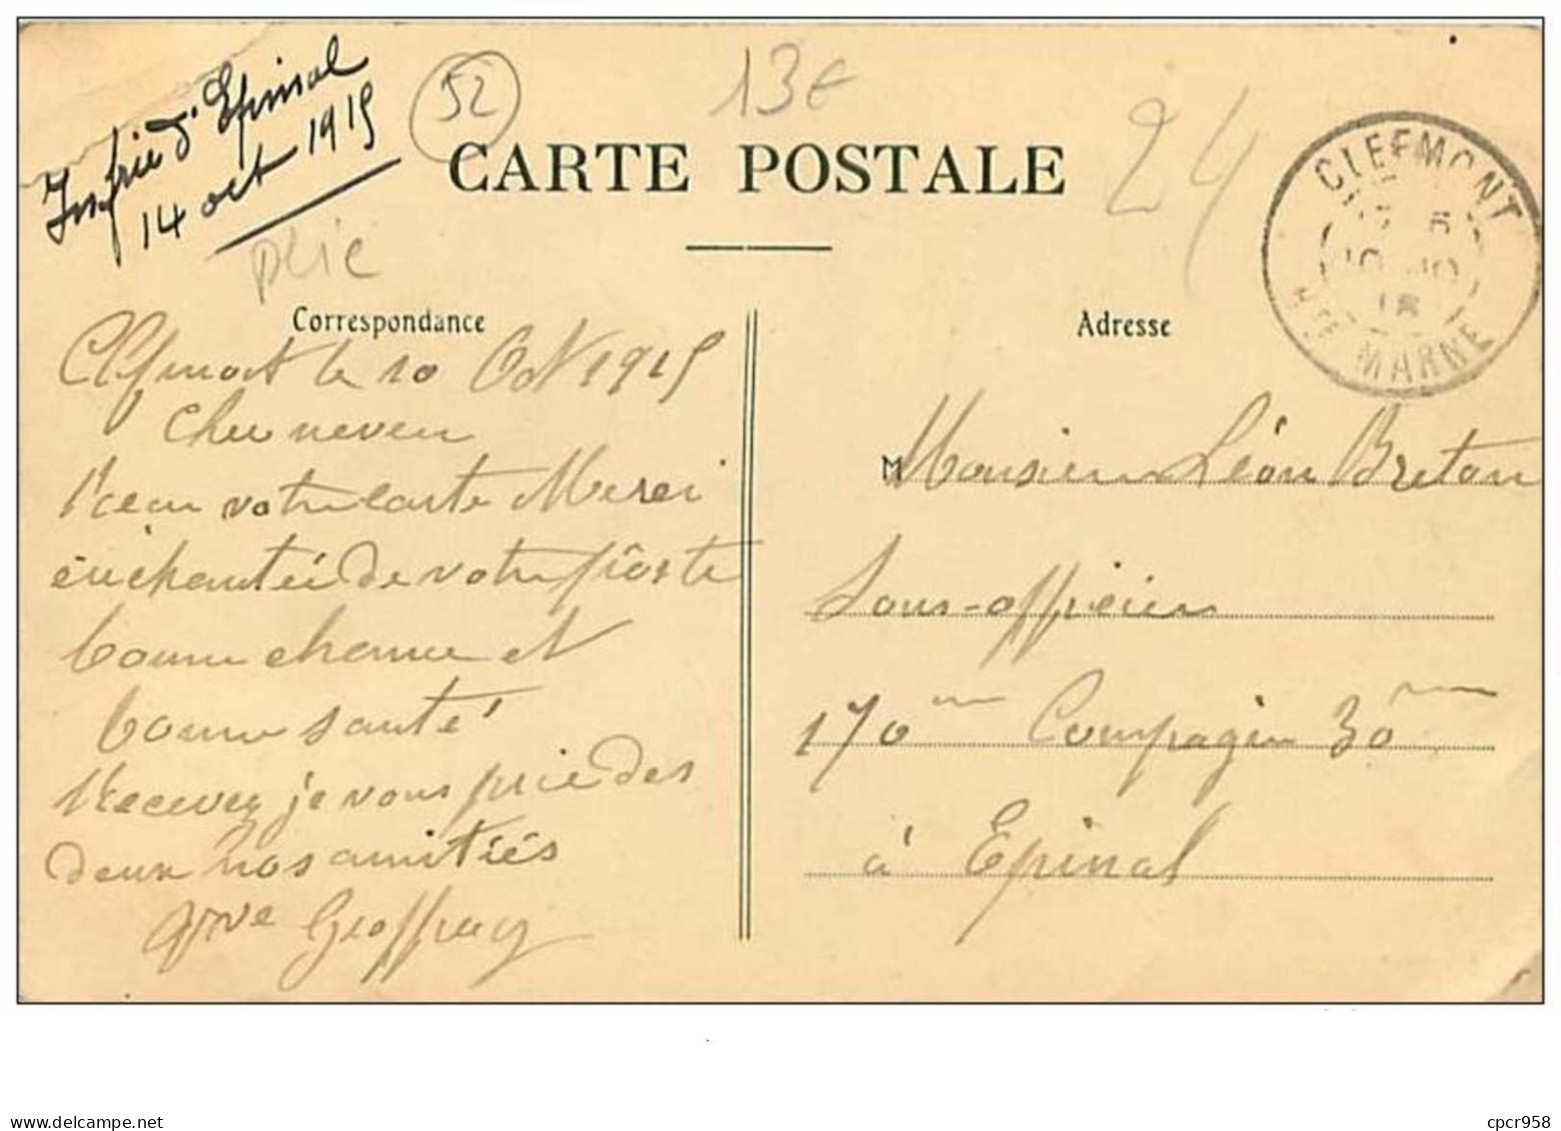 d'Epinal
14 oct 1915
52
13€
24
plié
CARTE POSTALE
CLEFMONT
Hte MARNE
Correspondance
Adresse
Clefmont le 10 Oct 1915
Cher neveu
Recu votre carte Merci
enchantée de votre poste
bonne chance et
bonne santé
Recevez je vous prie des
deux nos amitiés
Geoffroy
M Monsieur Léon Breton
Sous-officier
170me Compagnie 30me
à Epinal
Delcampe.net
cpcr958